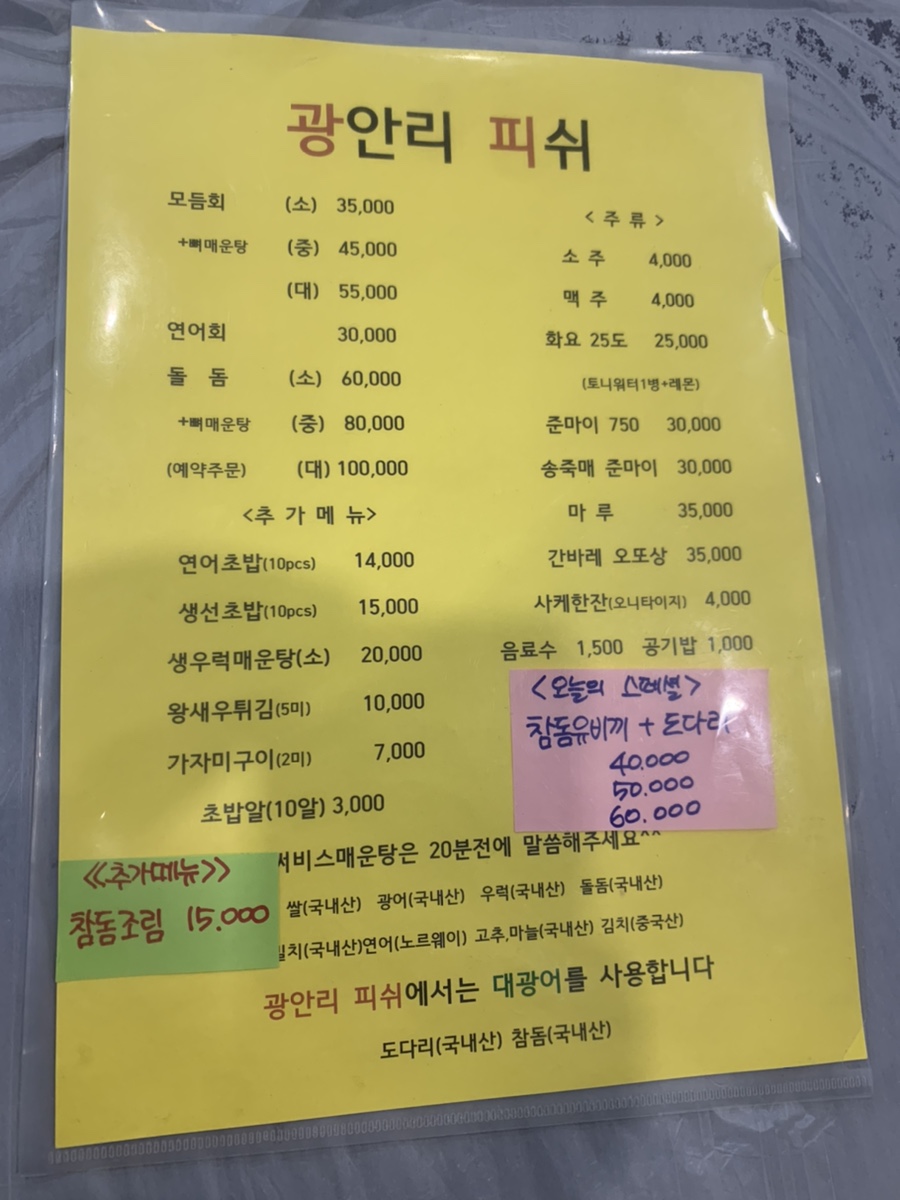 광안리 피쉬
모듬회 (소) 35,000
+뼈매운탕 (중) 45,000
(대) 55,000
연어회 30,000
돌 돔 (소) 60,000
+뼈매운탕 (중) 80,000
(예약주문) (대) 100,000
<추 가 메 뉴>
연어초밥(10pcs) 14,000
생선초밥(10pcs) 15,000
생우럭매운탕(소) 20,000
왕새우튀김(5미) 10,000
가자미구이(2미) 7,000
초밥알(10알) 3,000
< 주 류 >
소 주 4,000
맥 주 4,000
화요 25도 25,000
(토니워터1병+레몬)
준마이 750 30,000
송죽매 준마이 30,000
마 루 35,000
간바레 오또상 35,000
사케한잔(오니타이지) 4,000
음료수 1,500 공기밥 1,000
<오늘의 스페셜>
참돔유비끼 + 도다리
40.000
50.000
60.000
서비스매운탕은 20분전에 말씀해주세요^^
<<추가메뉴>>
참돔조림 15.000
쌀(국내산) 광어(국내산) 우럭(국내산) 돌돔(국내산)
밀치(국내산)연어(노르웨이) 고추,마늘(국내산) 김치(중국산)
광안리 피쉬에서는 대광어를 사용합니다
도다리(국내산) 참돔(국내산)